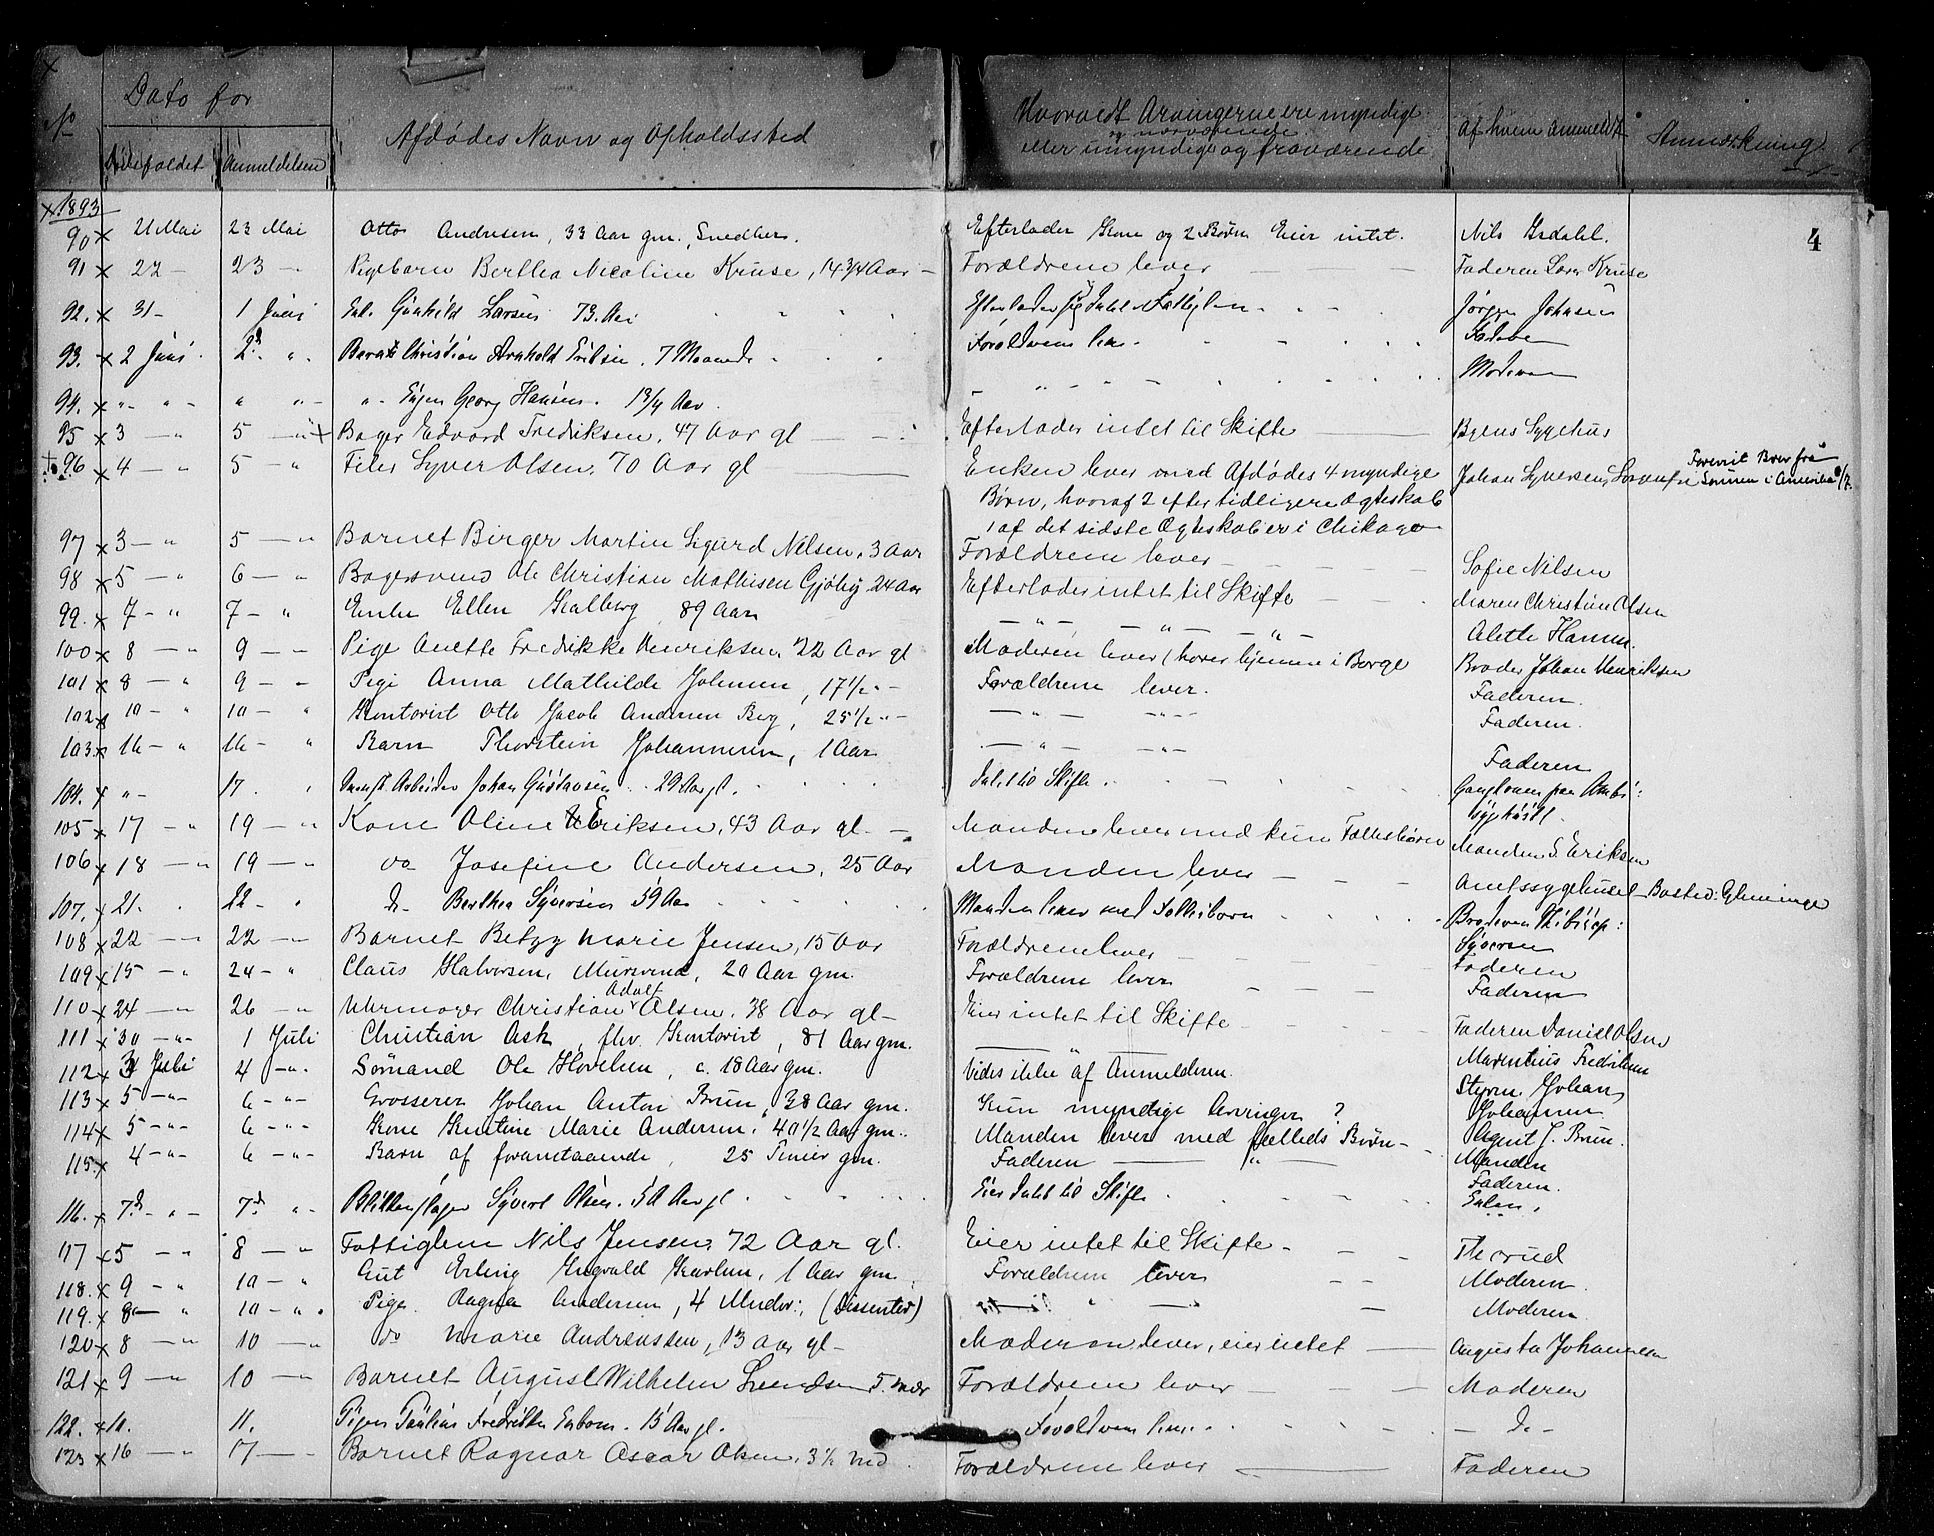 No
Dato for
Dødsfaldet Anmeldelsen
Afdødes Navn og Opholdssted
Hvorvidt Arvingerne ere myndige
og nærværende
eller umyndige og fraværende
Af hvem Anmeldt
Anmærkning
4
1893
90 21 Mai 23 Mai Otto Andresen, 33 Aar gm., Snedker. Efterlader Kone og 2 Børn Eier intet. Nils
91 22 - 23 - Pigebarn Bertha Nicoline Kruse, 14 3/4 Aar - Forældrene lever Faderen Lars Kruse
92. 31 - 1 Juni Enke Gunhild Larsen 73 Aar Jørgen Johnsen
93. 2 Juni 2d " Barnet Christian Arnhold 7 Maaneder Forældrene lever Faderen
94. " " " " " Georg Hansen. 1 3/4 Aar. " " Moderen
95 3 - " 5 - " Bager Edvard Fredriksen, 47 Aar gl Efterlader intet til Skifte Byens Sygehus
96 4 - " 5 - " Filer Syver Olsen, 70 Aar gl Enken lever med Afdødes 4 myndige Johan Syversen,
Brev fra
Sønnen i Amerika
Børn, hvoraf 2 efter tidligere Ægteskab
1 af det sidste Ægteskab er i Chikago
97 3 - " 5 - " Barnet Birger Martin Sigurd Nilsen, 3 Aar Forældrene lever Sofie Nilsen
98 5 - " 6 - " Bagersvend Ole Christian Mathisen Gjøby 24 Aar Efterlader intet til Skifte Maren Christine Olsen
99. 7 - " 7 - " Enke Ellen 89 Aar - " - " - " - Alette Hansen
100 8 - " 9 - " Pige Anette Fredrikke Henriksen, 22 Aar gl Moderen lever (hører hjemme i Borge Broder Johan Henriksen
101 8 - " 9 - " Pige Anna Mathilde Johnsen, 17 1/2 " - Forældrene lever. Faderen
102 10 - " 10 - " Kontorist Otto Jacob Andersen Berg, 25 1/2 " - - " - - " - Faderen.
103 16 - " 16 - " Barn Thorstein Johannesen, 1 Aar - " - - " - Faderen
104. " - 17. " Arbeider Johan Gustavsen 29 Aar gl. Intet til Skifte. Gangkonen paa Amts:
sygehuset.
105 17 - " 19 - " Kone Oline Eriksen, 43 Aar gl. - Manden lever med kun Fællesbørn Manden S. Eriksen
106 18 - " 19 - " do Josefine Andersen, 25 Aar Manden lever Amtssygehuset - Bosted: Glemminge
107. 21. 22 - " do Berthea Syversen 59 Aar Manden lever med Fællesbørn Broderen
Syversen
108 22 - " 22 - " Barnet Betzy Marie Jensen, 15 Aar Forældrene lever Faderen
109 15 - " 24 - " Claus Halvorsen, Mursvend, 20 Aar gm. Forældrene lever Faderen
Adolf
110 24 - " 26 - " Uhrmager Christian Olsen, 38 Aar gl - Eier intet til Skifte Faderen Daniel Olsen
111 30 - " - 1 Juli Christian Ask, fhv. Kontorist, 81 Aar gm. " Marentius Fredriksen
112 3 Juli 4 - " - Sømand Ole Hovelsen, c. 18 Aar gm. Vides ikke af Anmelderen. Styrm. Johan
Johannesen
113 5 - " - 6 - " - Grosserer Johan Anton Brun, 38 Aar gm. Kun myndige Arvinger ? Agent J. Brun.
114 5 - " - 6 - " - Kone Kristine Marie Andersen, 40 1/2 Aar gm. Manden lever med fælleds Børn - Manden
115. 4 - " - 6 - " - Barn af foranstaaende, 25 Timer gm. Faderen " Faderen.
116. 7d - " - 7d " - Blikkenslager Syvert Olsen, 50 Aar gl Eier Intet til Skifte Enken.
117 5 - " 8 - " Fattiglem Nils Jensen, 72 Aar gl. Eier intet til Skifte - Thorud
118. 9 - " 10 - " Gut Erling Ingvald Karlsen, 1 Aar gm. Forældrene lever Moderen.
119. 8 - " 10 - " Pige Ragna Andersen, 4 Mndr:, (Dissenter) " Moderen
120 8 - " 10 - " do Marie Andreassen, 13 Aar gl - Moderen lever, eier intet Augusta Johannesen
121 9 - " 10 - " Barnet August Wilhelm Svendsen Forældrene lever Moderen
122. 10. 11. Pigen Pauline Fredrikke 15 Aar gl. Forældrene lever - do -
123 16 - " 17 - Barnet Ragnar Oscar Olsen, 3 1/2 Md Forældrene lever Faderen